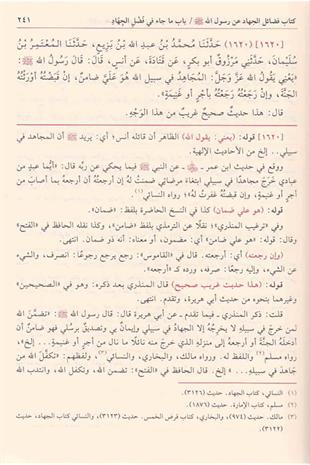 كتاب فضائل الجهاد عن رسول الله ﷺ / باب ما جاء في فضل الجهاد ٢٤١
[١٦٢٠] (١٦٢٠) حَدَّثَنَا مُحَمَّدُ بْنُ عبدِ اللهِ بْنُ بَزِيعٍ، حَدَّثَنَا الْمُعْتَمِرُ بْنُ
سُلَيْمَانَ، حَدَّثَنِي مَرْزُوقٌ أبو بكرٍ، عن قَتَادَةَ، عن أَنَسٍ، قَالَ: قَالَ رَسُولُ اللهِ ﷺ:
«يَعْنِي يَقُولُ اللهُ عَزَّ وَجَلَّ: الْمُجَاهِدُ في سبيلِ اللهِ هو عَلَيَّ ضامنٌ، إنْ قَبَضْتُهُ أَوْرَثْتُهُ
الجَنَّةَ، وإن رَجَعْتُهُ رَجَعْتُهُ بأجرٍ أو غَنِيمَةٍ».
قال: هذا حديثٌ صحيحٌ غريبٌ من هذا الوَجْهِ.
[١٦٢٠] قوله: (يعني: يقول الله) الظاهر أن قائله أنس؛ أي: يريد ﷺ أن المجاهد في
سبيلي.. إلخ من الأحاديث الإلهية.
ووقع في حديث ابن عمر ـ عن النبي ﷺ فيما يحكي عن ربِّه قال: «أيُّما عبدٍ من
عبادي خَرَجَ مجاهدًا في سبيلي ابتغاءَ مرضاتي ضمنتُ لهُ إن أرجعتُهُ أن أرجعهُ بما أصابَ من
أجرٍ أو غنيمةٍ، وإن قبضتُه غفرتُ لهُ» رواه النسائي(١).
قوله: (هو علي ضمان) كذا في النسخ الحاضرة بلفظ: «ضمان».
وفي «ترغيب المنذري»؛ نقلًا عن الترمذي بلفظ «ضامن»، وكذا نقله الحافظ في «الفتح»
وقال: قوله: «هو علي ضامن» أي: مضمون، أو معناه: أنه ذو ضمان. انتهى.
(وإن رجعته) أي: أرجعته. قال في «القاموس»: رجع يرجع رجوعًا: انصرف، والشيء
عن الشيء، وإليه رجعًا: صرفه، ورده كـ «أرجعه».
قوله: (هذا حديث غريب صحيح) قال المنذري بعد ذكره: وهو في «الصحيحين»
وغيرهما بنحوه من حديث أبي هريرة، وتقدم. انتهى.
قلت: ذكر المنذري ـ فيما تقدم ـ عن أبي هريرة قال: قال رسول الله ﷺ: «تضمَّنَ اللهُ
لمن خرجَ في سبيلِهِ لا يخرجُهُ إلا الجهادُ في سبيلي وإيمانٌ بي وتصديقٌ برسُلي فهو ضامنٌ أن
أدخلَهُ الجنَّةَ أو أرجعَهُ إلى منزلِهِ الذي خرجَ منه نائلًا ما نالَ من أجرٍ أو غنيمةٍ... إلخ»،
رواه مسلم(٢) واللفظ له. ورواه مالك، والبخاري، والنسائي(٣)، ولفظهم: «تكفَّلَ اللهُ من
جاهدَ في سبيلِهِ... » إلخ. قال الحافظ في «الفتح»: تضمن الله، وتكفل الله، وانتدب الله
(١) النسائي، كتاب الجهاد. حديث (٣١٢٦).
(٢) مسلم، كتاب الإمارة. حديث (١٨٧٦).
(٣) مالك. حديث (٩٧٤)، والبخاري، كتاب فرض الخمس. حديث (٣١٢٣)، والنسائي كتاب الجهاد، حديث
(٣١٢٢).